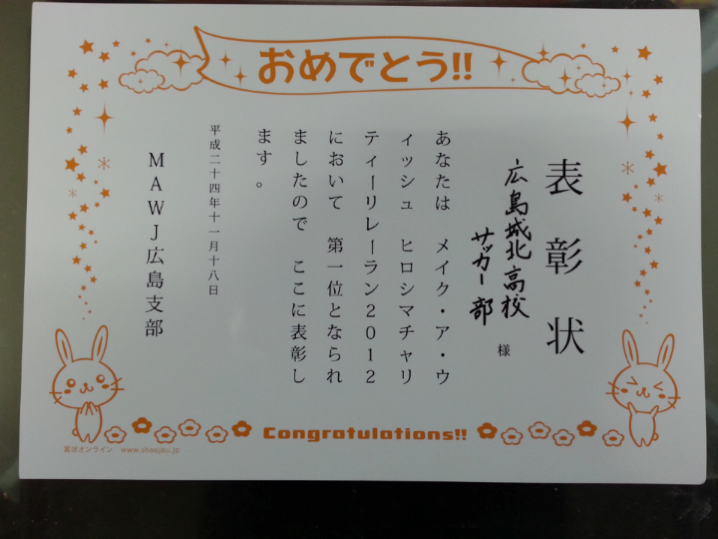 おめでとう!!
表彰状
広島城北高校
サッカー部
様
あなたは　メイク・ア・ウ
ィッシュ　ヒロシマチャリ
ティーリレーラン2012
において　第一位となられ
ましたので　ここに表彰し
ます。
平成二十四年十一月十八日
MAWJ広島支部
Congratulations!!
賞状オンライン　www.shoujou.jp